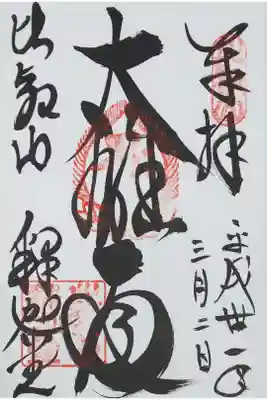 奉拝
平成卅一年
三月二日
大雄
比叡山
釋迦堂